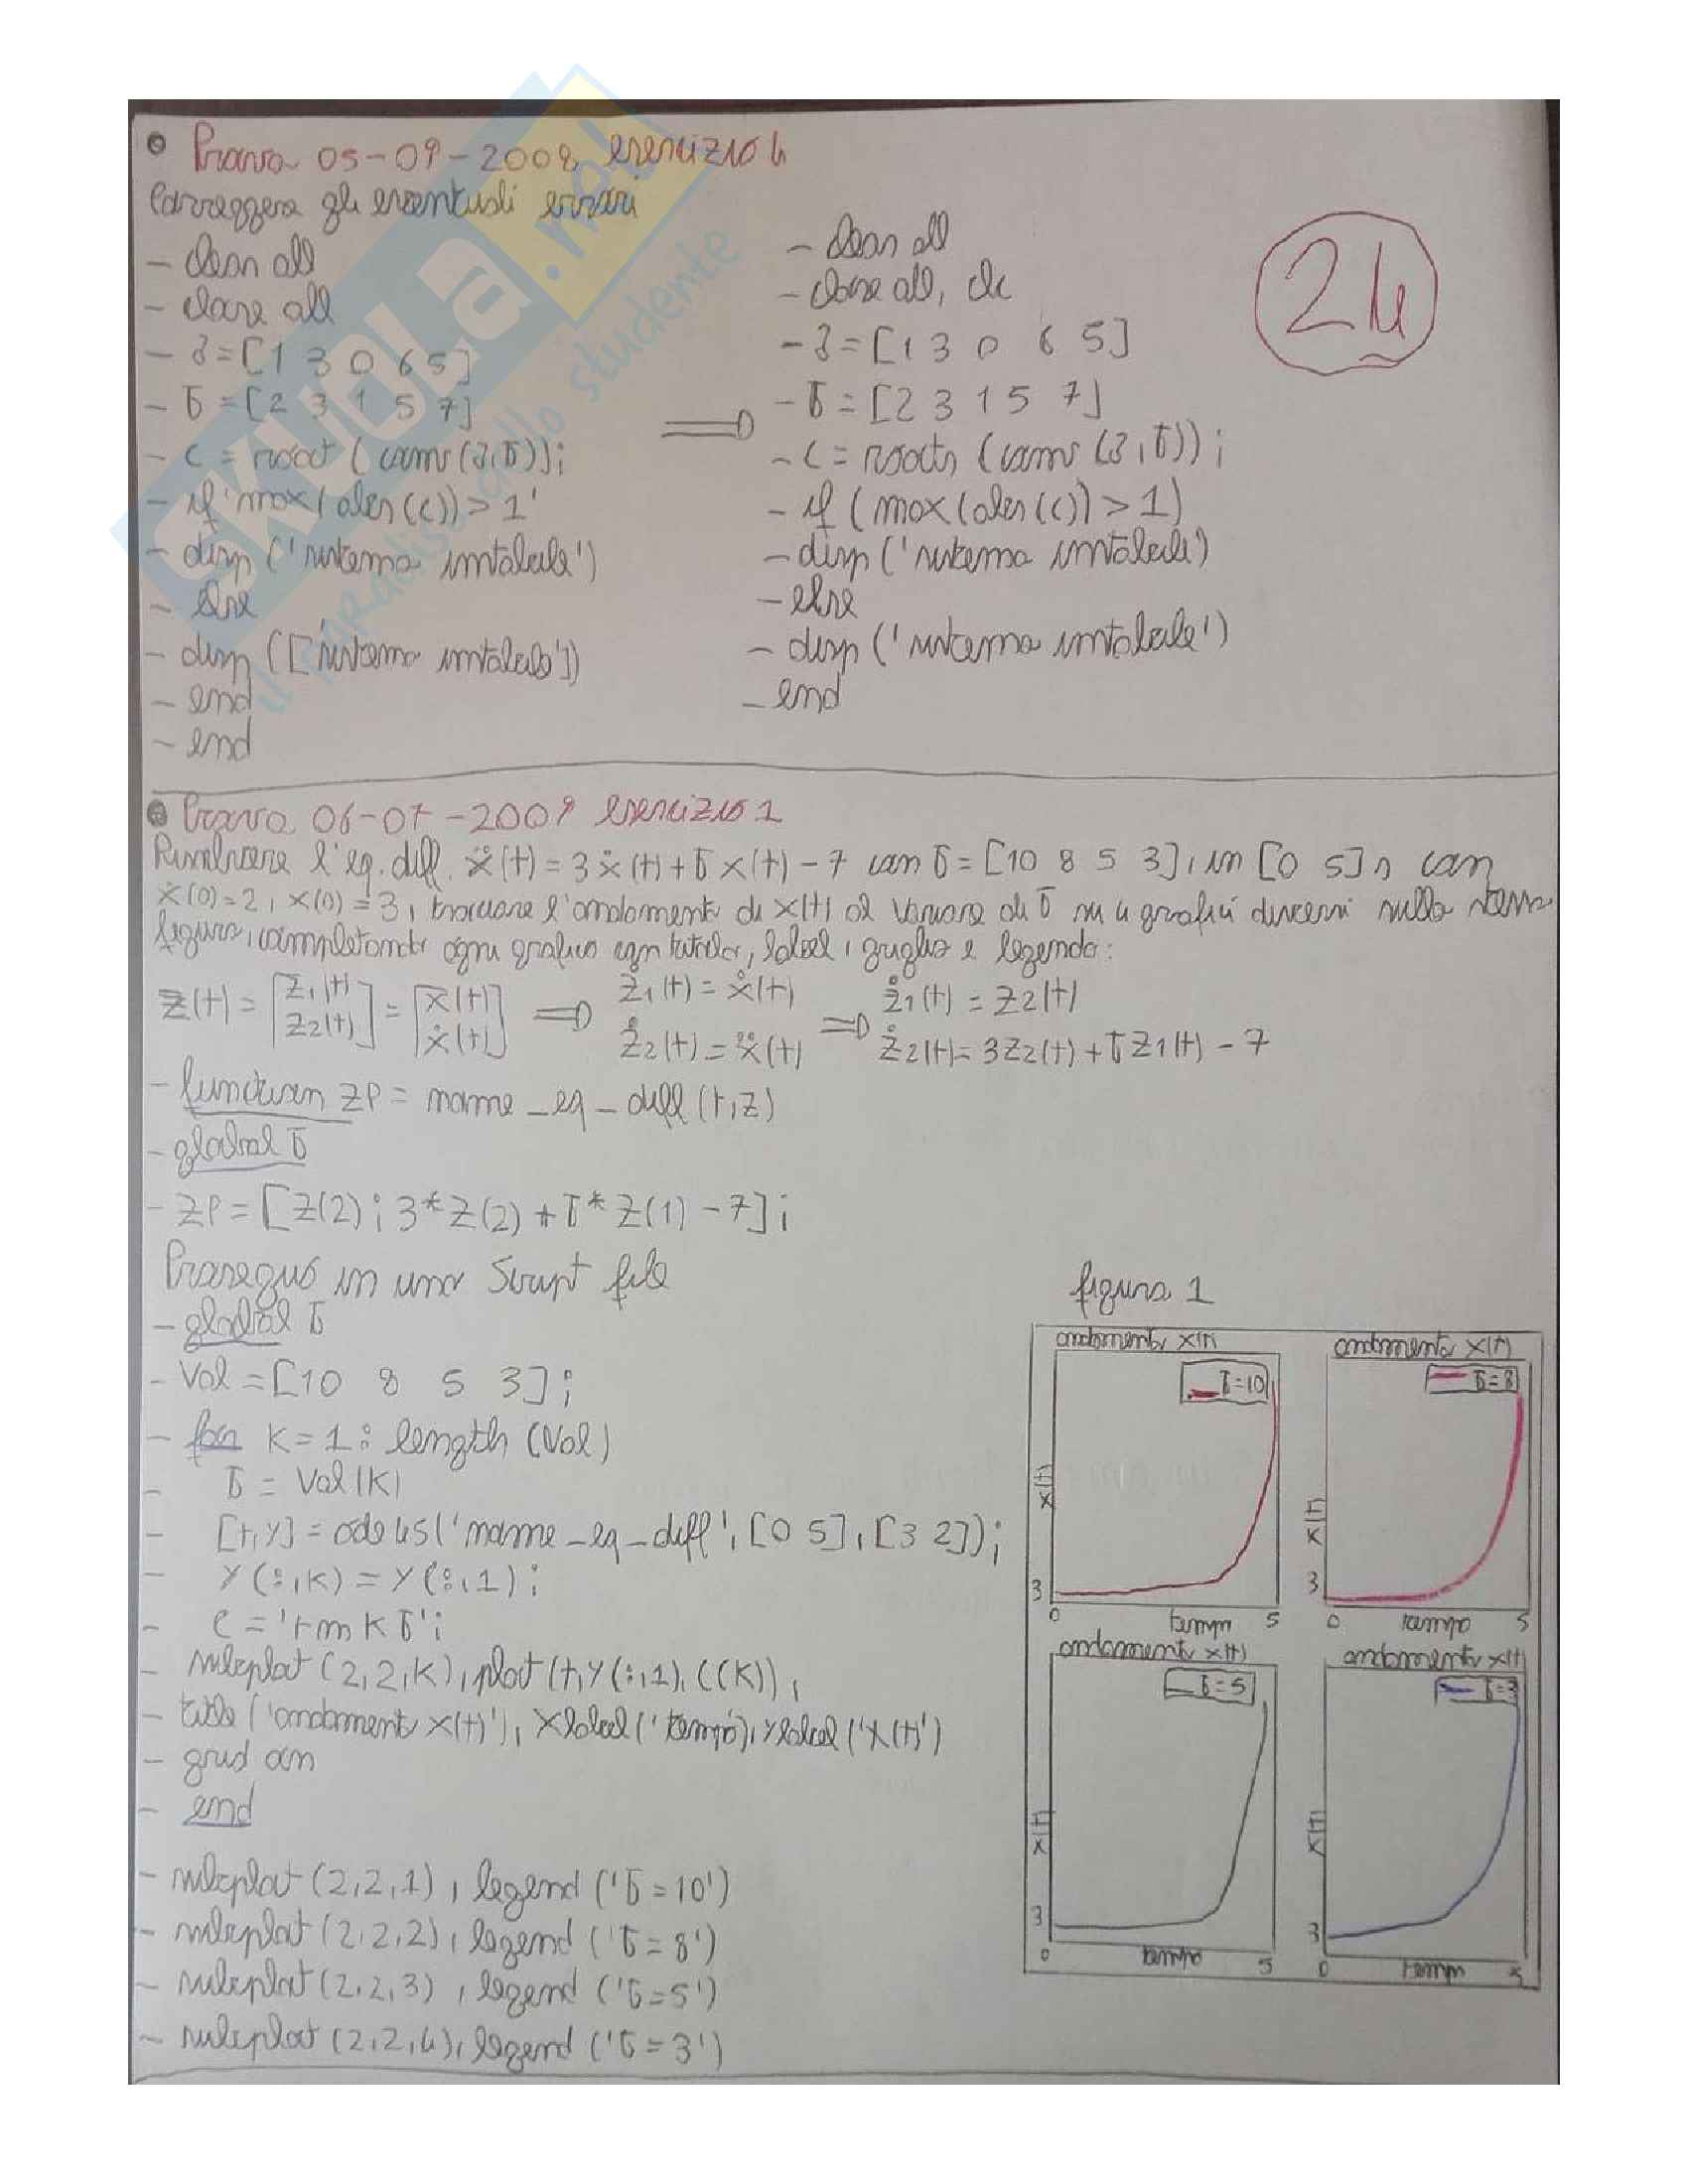 Prova 05-09-2008 esercizio 4
Correggere gli eventuali errori
- clear all
- close all
- a=[1 3 0 6 5]
- b=[2 3 1 5 7]
- c = root (conv(a,b));
- if 'max(abs(c))>1'
- disp ('sistema instabile')
- else
- disp (['sistema instabile'])
- end
- end
- clear all
- close all, clc
- a=[1 3 0 6 5]
- b=[2 3 1 5 7]
- c = roots (conv (a,b));
- if (max(abs(c))>1)
- disp ('sistema instabile')
- else
- disp ('sistema instabile')
- end
24
Prova 06-07-2009 esercizio 1
Risolvere l'eq. diff. ẍ(t) = 3ẋ(t)+b x(t)-7 con b=[10 8 5 3], in [0 5], con
ẋ(0)=2, x(0)=3, trovare l'andamento di x(t) al variare di b su 4 grafici diversi sulla stessa
figura, completando ogni grafico con titolo, label, griglia e legenda:
z(t) = [z1(t) z2(t)] = [x(t) ẋ(t)] ⇒ ż1(t) = ẋ(t) ⇒ ż1(t) = z2(t)
ż2(t) = ẍ(t) ż2(t) = 3z2(t)+bz1(t)-7
- function zp = nome_eq_diff(t,z)
- global b
- zp = [z(2); 3*z(2)+b*z(1)-7];
Proseguo in uno Script file
- global b
- Val = [10 8 5 3];
- for K=1:length(Val)
- b = Val(K)
- [t,y] = ode45('nome_eq_diff',[0 5],[3 2]);
- Y(:,K) = Y(:,1);
- C = 'rmkb';
- subplot(2,2,K), plot(t,Y(:,1),C(K)),
- title('andamento x(t)'), Xlabel('tempo'), Ylabel('X(t)')
- grid on
- end
- subplot(2,2,1), legend('b=10')
- subplot(2,2,2), legend('b=8')
- subplot(2,2,3), legend('b=5')
- subplot(2,2,4), legend('b=3')
figura 1
andamento x(t)
b=10
x(t)
3
0
tempo
5
andamento x(t)
b=8
x(t)
3
0
tempo
5
andamento x(t)
b=5
x(t)
3
0
tempo
5
andamento x(t)
b=3
x(t)
3
0
tempo
5
SKUOLA.net
il paradiso dello studente